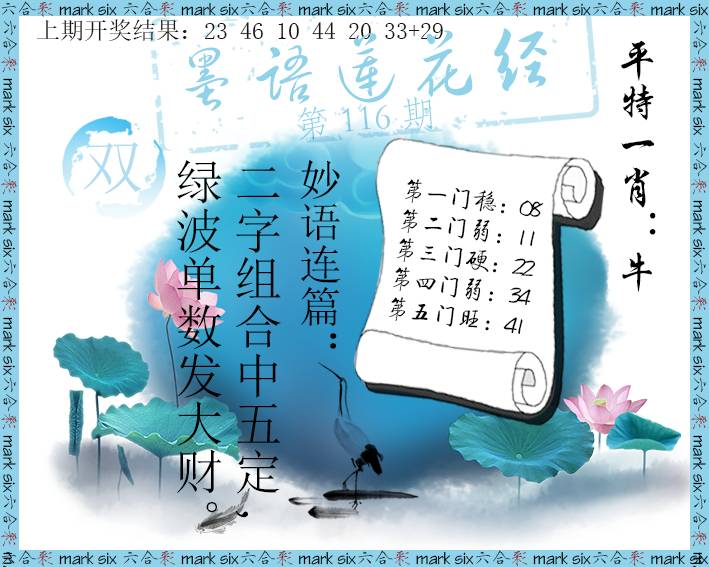 上期开奖结果：23 46 10 44 20 33+29
墨语莲花经
第 116 期
双
平特一肖：牛
妙语连篇：
二字组合中五定、
绿波单数发大财。
第一门稳：08
第二门弱：11
第三门硬：22
第四门弱：34
第五门旺：41
六合彩 mark six 六合彩 mark six 六合彩 mark six 六合彩 mark six 六合彩 mark six